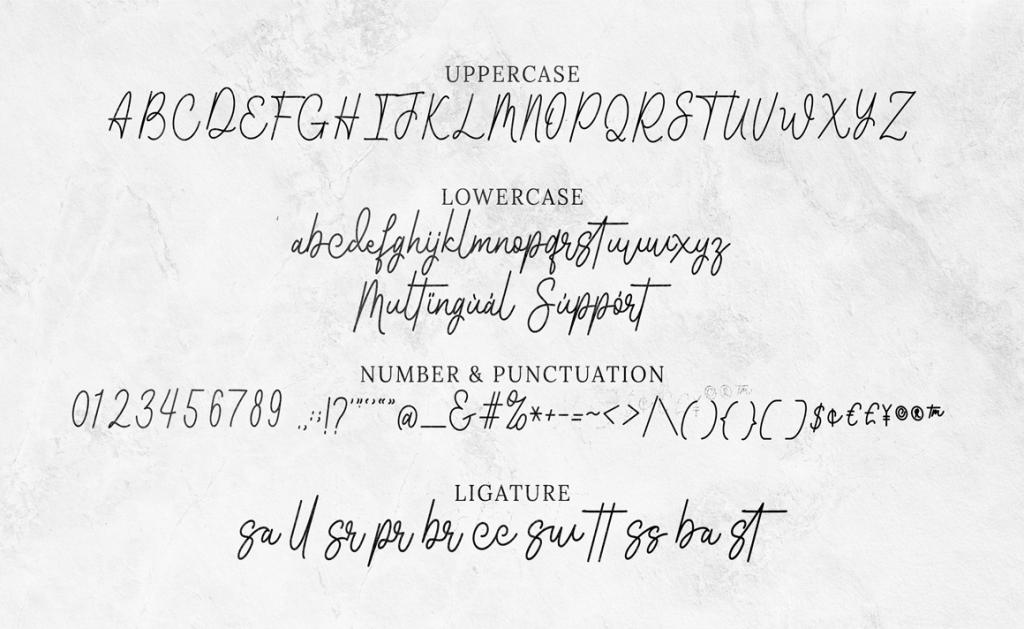 UPPERCASE
ABCDEFGHIJKLMNOPQRSTUVWXYZ
LOWERCASE
abcdefghijklmnopqrstuvwxyz
Multïngùál Súppórt
NUMBER & PUNCTUATION
0123456789 .,:;!?'"‘’“”@_&#%*+-=~<>/\(){}[]$¢€£¥©®™
LIGATURE
sa ll sr pr br ee sw tt ss ba st